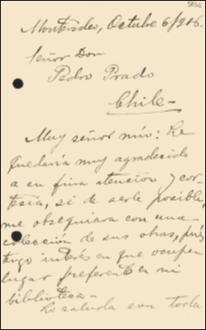 Montevideo, Octubre 6/916.
Señor Don
Pedro Prado
Chile.
Muy señor mío: Le
quedaría muy agradecido
a su fina atencion y cor-
tesía, si de serle posible,
me obsequiara con una
colección de sus obras, pues
tengo interés en que ocupen
lugar preferente en mi
biblioteca.
Le saluda con toda